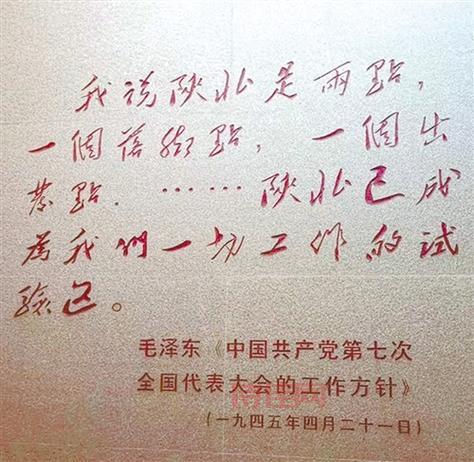 我说陝北是兩點，
一個落腳點，一個出
發點。……陝北已成
為我們一切工作的试
驗区。
毛泽东《中国共产党第七次
全国代表大会的工作方针》
（一九四五年四月二十一日）